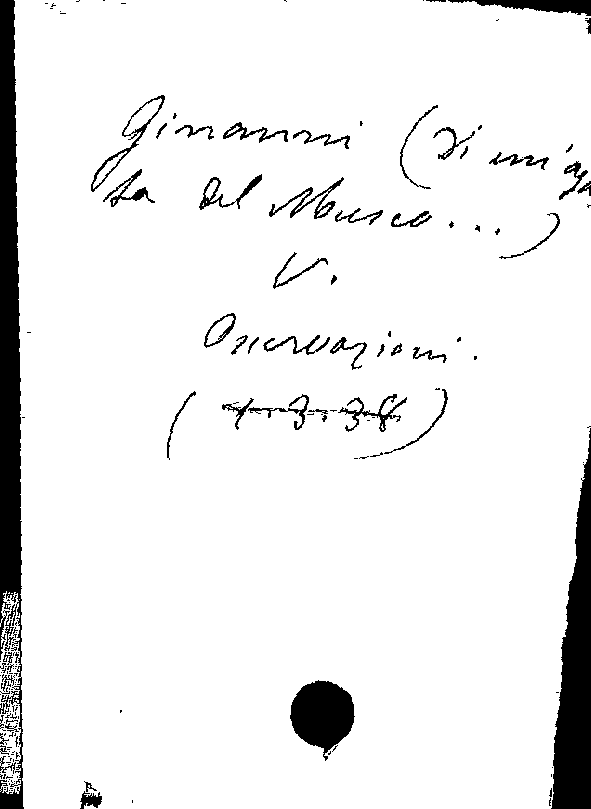 Ginanni (Di un'aga
ta del Museo...)
V.
Osservazioni.
(1.3.38)